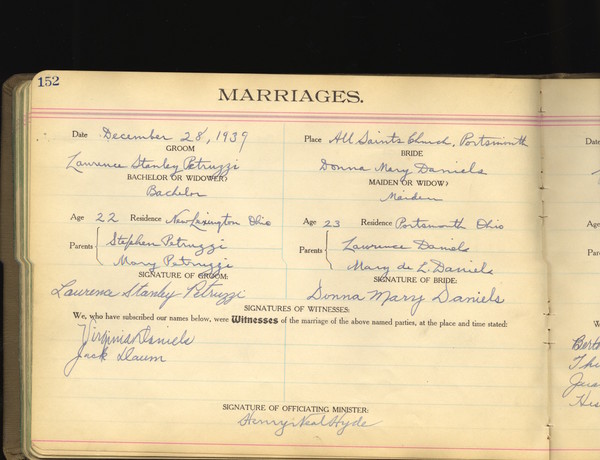 152
MARRIAGES.
Date December 28, 1939 Place All Saints Church, Portsmouth Date
GROOM BRIDE
Laurence Stanley Petruzzi Donna Mary Daniels
BACHELOR OR WIDOWER? MAIDEN OR WIDOW?
Bachelor Maiden
Age 22 Residence New Lexington Ohio Age 23 Residence Portsmouth Ohio Age
Parents Stephen Petruzzi Parents Lawrence Daniels
Mary Petruzzi Mary de L. Daniels
SIGNATURE OF GROOM: SIGNATURE OF BRIDE:
Laurence Stanley Petruzzi Donna Mary Daniels
SIGNATURES OF WITNESSES:
We, who have subscribed our names below, were Witnesses of the marriage of the above named parties, at the place and time stated:
Virginia Daniels
Jack Daum
SIGNATURE OF OFFICIATING MINISTER:
Henry Neal Hyde